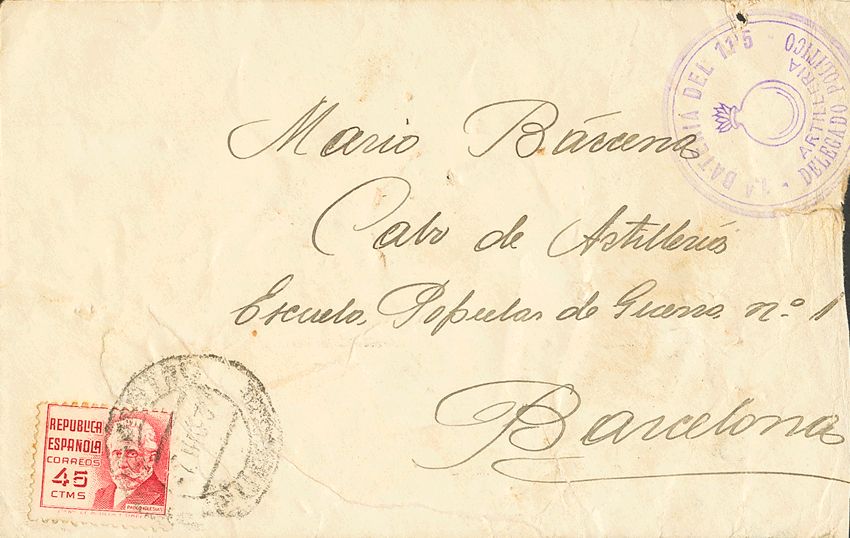 1.A BATERIA DEL 11'5 - DELEGADO POLITICO -
ARTILLERIA
Mario Bárcena
Cabo de Artillería
Escuela Popular de Guerra nº 1
Barcelona
REPUBLICA
ESPAÑOLA
CORREOS
45
CTMS
PABLO IGLESIAS